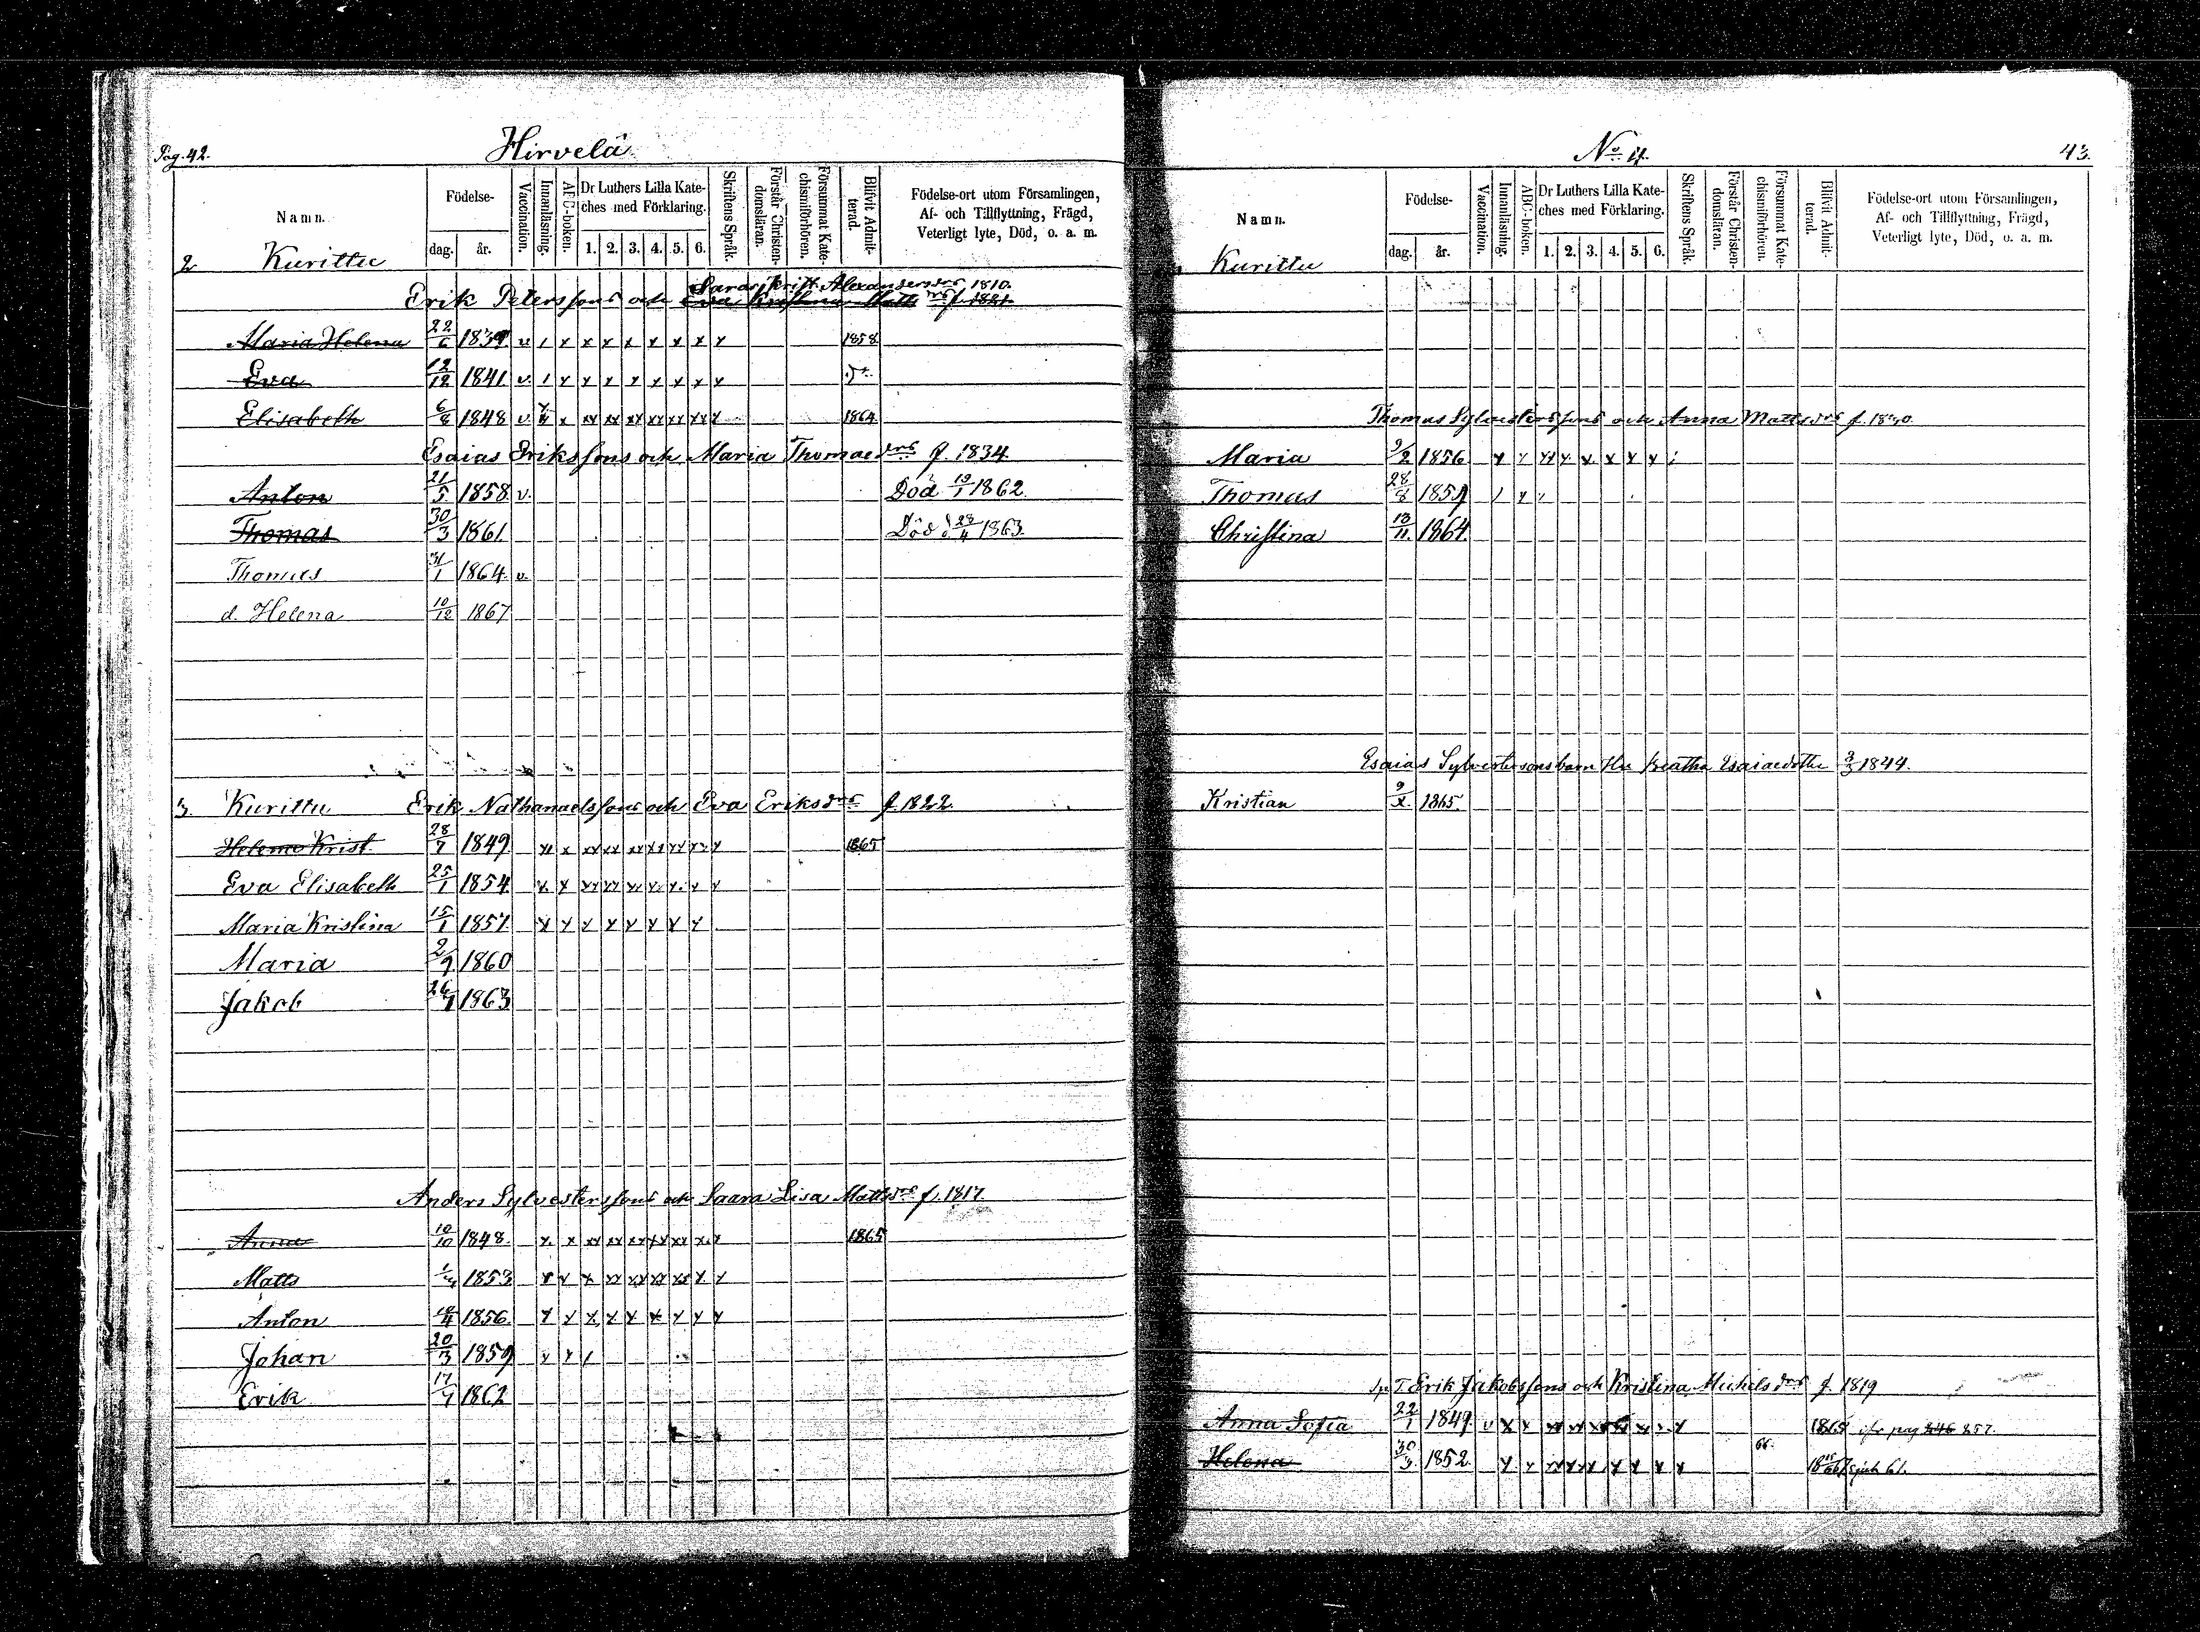 Pag. 42.
Hirvelä
Namn.
Födelse-
dag.
år.
Vaccination.
Innanläsning.
ABC-boken.
Dr Luthers Lilla Kate-
ches med Förklaring.
1. 2. 3. 4. 5. 6.
Skriftens Språk.
Förstår Christen-
domsläran.
Försummat Kate-
chismiförhören.
Blifvit Admit-
terad.
Födelse-ort utom Församlingen,
Af- och Tillflyttning, Frägd,
Veterligt lyte, Död, o. a. m.
2 Kurittu
Alexandersdrs 1810.
Erik Peterssons och Eva Kristina Matts drs f. 1821.
Maria Helena 22/6 1839 v / x x x x x x x x 1858
Eva 12/12 1841 v. / x x x x x x x x
Elisabeth 6/8 1848 v. x xx xx xx xx xx xx x 1864
Esaias Erikssons och Maria Thomaedrs f. 1834.
Anton 21/5 1858 v. Död 1862.
Thomas 30/3 1861 Död d. 28/4 1863.
Thomas 31/1 1864. v.
d. Helena 10/12 1867
3. Kurittu Erik Nathanaelssons och Eva Eriksdrs f. 1822.
Helena Krist. 28/7 1849 x x xx xx xx xx xx xx x 1865
Eva Elisabeth 25/1 1854 x x xx xx x. x. x. x x
Maria Kristina 15/1 1857. x x x x x x x x
Maria 2/9 1860
Jakob 26/7 1863
Anders Sylvesterssons och Saara Lisa Mattsdrs f. 1817.
Anna 10/10 1848. x. x xx xx xx xx xx x. x 1865
Matts 1853 x x x xx xx xx xx x x
Anton 1856. x x x x x x x x x
Johan 20/3 1859 x x /
Erik 17/4 1862
No 4. 43.
Namn.
Födelse-
dag.
år.
Vaccination.
Innanläsning.
ABC-boken.
Dr Luthers Lilla Kate-
ches med Förklaring.
1. 2. 3. 4. 5. 6.
Skriftens Språk.
Förstår Christen-
domsläran.
Försummat Kate-
chismiförhören.
Blifvit Admit-
terad.
Födelse-ort utom Församlingen,
Af- och Tillflyttning, Frägd,
Veterligt lyte, Död, o. a. m.
Kurittu
Thomas Sylvesterssons och Anna Mattsdrs f. 1830.
Maria 9/2 1856 x x xx x. x. x x x
Thomas 28/8 1859 / x
Christina 13/11. 1864.
Esaias Sylvesterssons barn Hu Beatha Esaiaedotter 3/3 1844.
Kristian 9/X. 1865.
Sp. T. Erik Jakobssons och Kristina Michelsdrs f. 1819
Anna Sofia 22/1 1849. v x x xx xx xx xx xx x. x 1865 pag 846 857.
Helena 30/3. 1852. x x xx xx xx x x x x 66.